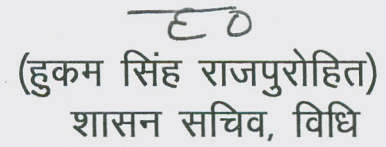 (हुकम सिंह राजपुरोहित)
शासन सचिव, विधि